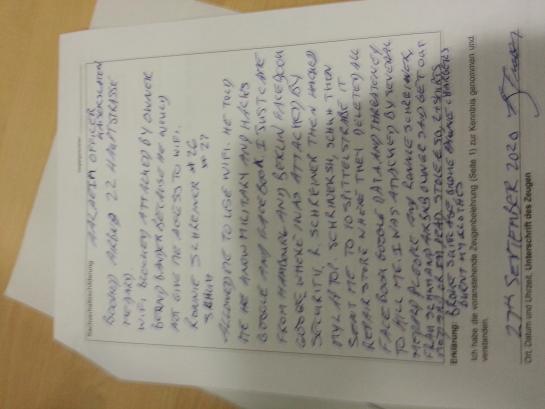 Sachverhaltsschilderung
AARADIA OFFICER
BOOKED AIRBNB 22 HAUPTSTRASSE
WIFI BLOCKED ATTACKED BY OWNER
BERND BECAUSE HE WOULD
NOT GIVE ME ACCESS TO WIFI.
RONNIE SCHREINER # 26
ALLOWED ME TO USE WIFI. HE TOLD
ME HE KNOW MILITARY AND HACKS
GOOGLE AND FACEBOOK I JUST CAME
FROM HAMBURG AND BERLIN FACEBOOK
GOOGLE WHERE I WAS ATTACKED BY
SECURITY. R. SCHREINER THEN HACKED
MY LAPTOP. SCHREINER THEN
SENT ME TO 10 SPITTELSTRASSE IT
REPAIR STORE WHERE THEY DELETED ALL
FACEBOOK GOOGLE DATA AND THREATENED
TO KILL ME. I WAS ATTACKED BY SEVERAL
PEOPLE AND RONNIE SCHREINER
AND AIRBNB OWNER SAID GET OUT
BROKE SUITCASE STOLE PHONE CHARGERS
BURNT MY CLOTHES
Erklärung:
Ich habe die vorstehende Zeugenbelehrung (Seite 1) zur Kenntnis genommen und
verstanden.
27TH SEPTEMBER 2020
Ort, Datum und Uhrzeit, Unterschrift des Zeugen